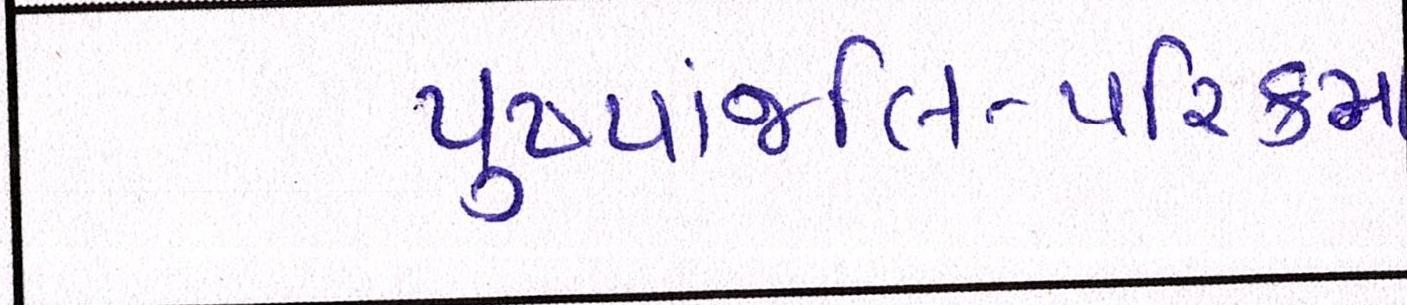 પુષ્પાંજલિ-પરિક્રમા